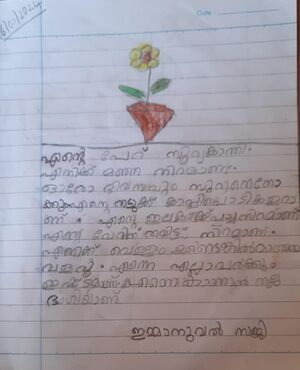 6/01/2024
Date :
എന്റെ പേര് സൂര്യകാന്തി.
എനിക്ക് മഞ്ഞ നിറമാണ്.
ഓരോ ദിവസവും സൂര്യനെനോ
ക്കും എന്റെ
എന്റെ ഇലകൾക്ക് പച്ചനിറമാണ്
എന്റെ വേരിന് തവിട്ട് നിറമാണ്.
എനിക്ക് വെള്ളം
വളരൂ. എന്നെ എല്ലാവർക്കും
ഇഷ്ടമാണ് എന്നെ കാണാൻ നല്ല
ഭംഗിയാണ്
ഇമ്മാനുവൽ സജി